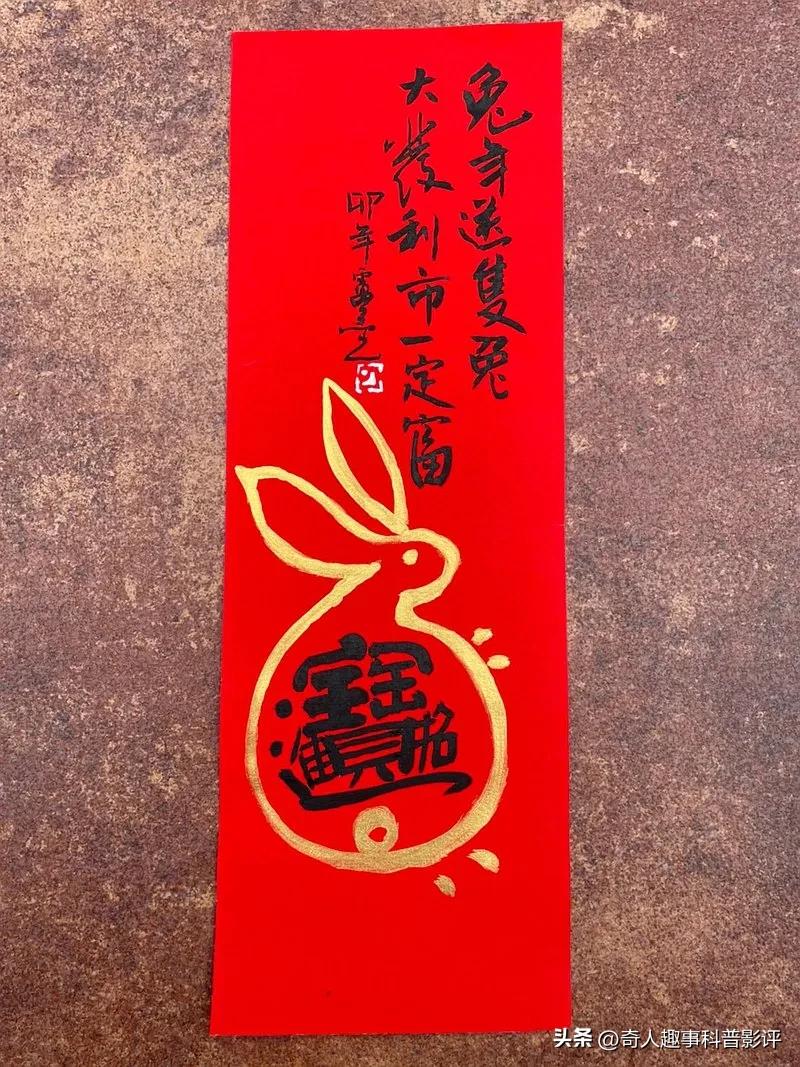 兔年送隻兔
大發利市一定富
卯年
招財進寶
头条 @奇人趣事科普影评